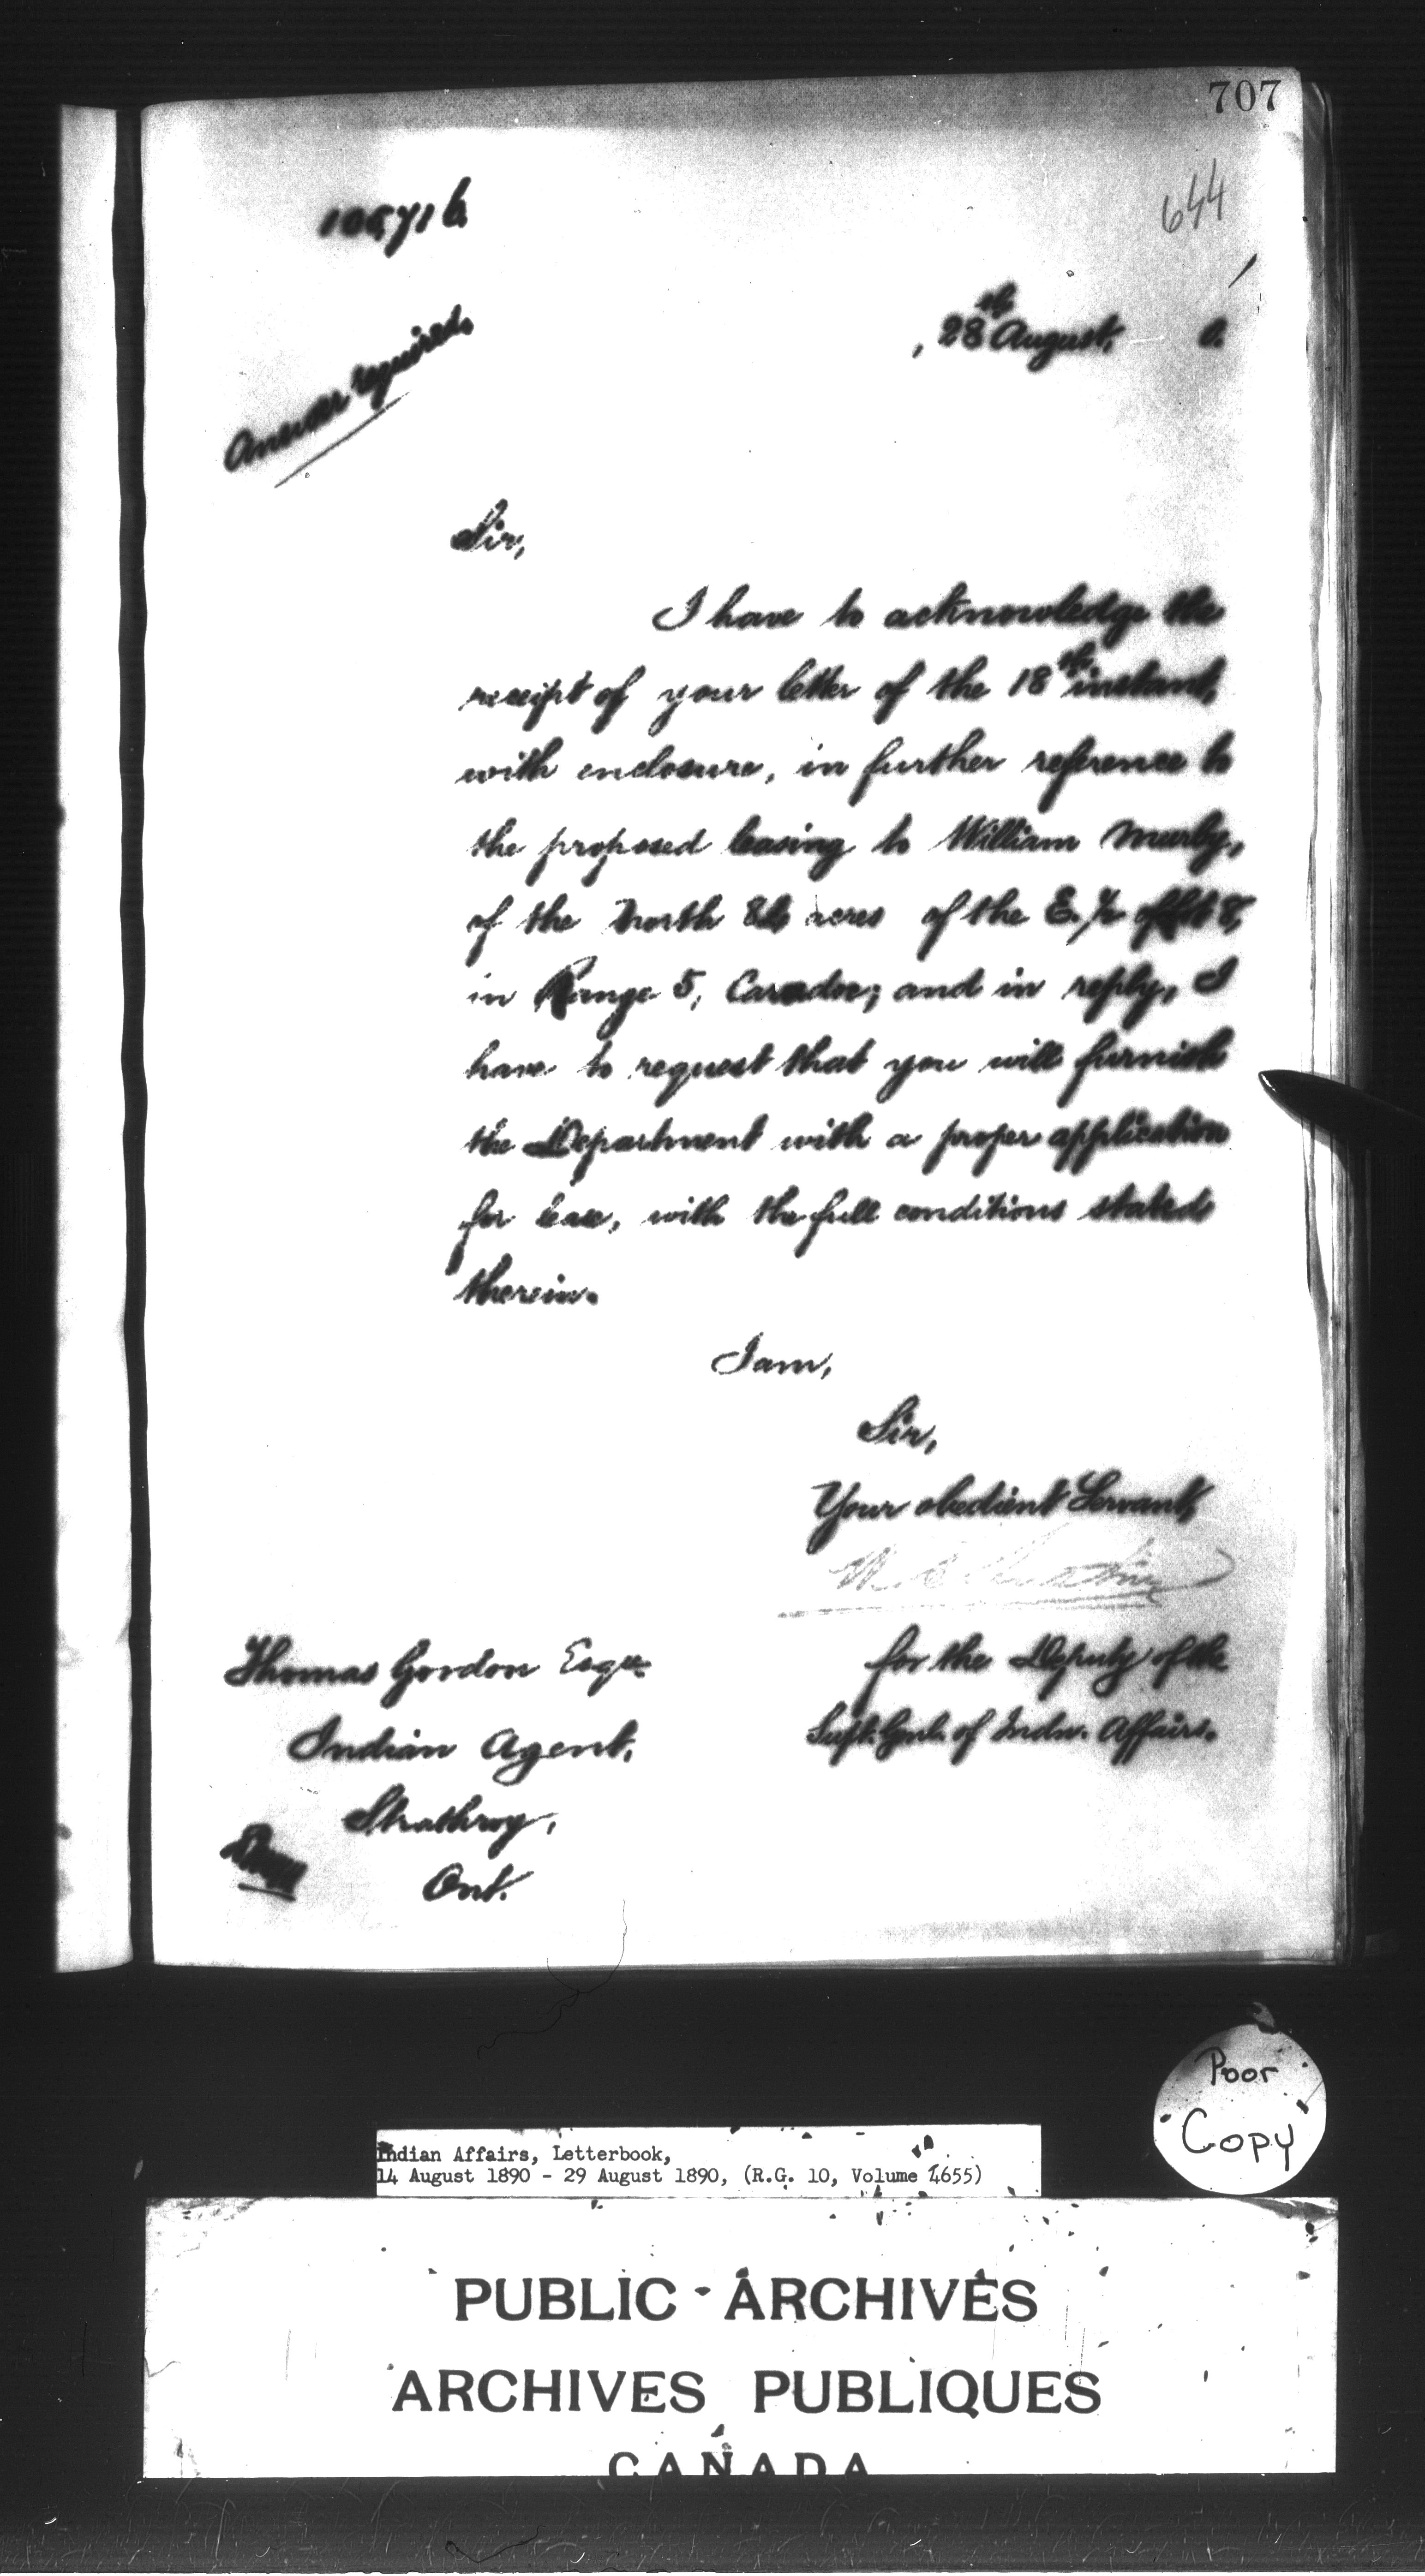 707
644
Answer required.
28th August, 0.
Sir,
I have to acknowledge the
receipt of your letter of the 18th instant,
with enclosure, in further reference to
the proposed leasing to William Murby,
of the North acres of the E. 1/2 of Lot 8,
in Range 5, Caradoc; and in reply, I
have to request that you will furnish
the Department with a proper application
for lease, with the full conditions stated
therein.
I am,
Sir,
Your obedient Servant,
for the Deputy of the
Supt. Genl. of Indn. Affairs.
Thomas Gordon Esqre
Indian Agent,
Strathroy,
Ont.
Poor
Copy
Indian Affairs, Letterbook,
14 August 1890 - 29 August 1890, (R.G. 10, Volume 4655)
PUBLIC ARCHIVES
ARCHIVES PUBLIQUES
CANADA